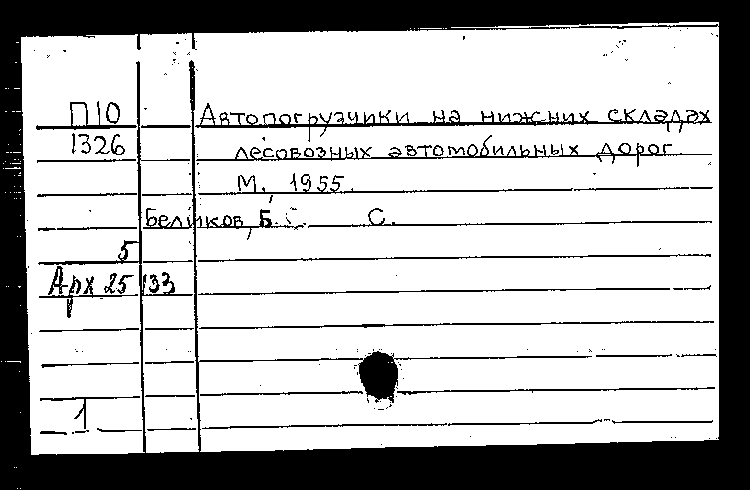 П10 Автопогрузчики на нижних складах
1326 лесовозных автомобильных дорог
М., 1955.
Беликов, Б. С. С.
5
Арх 25 133
1